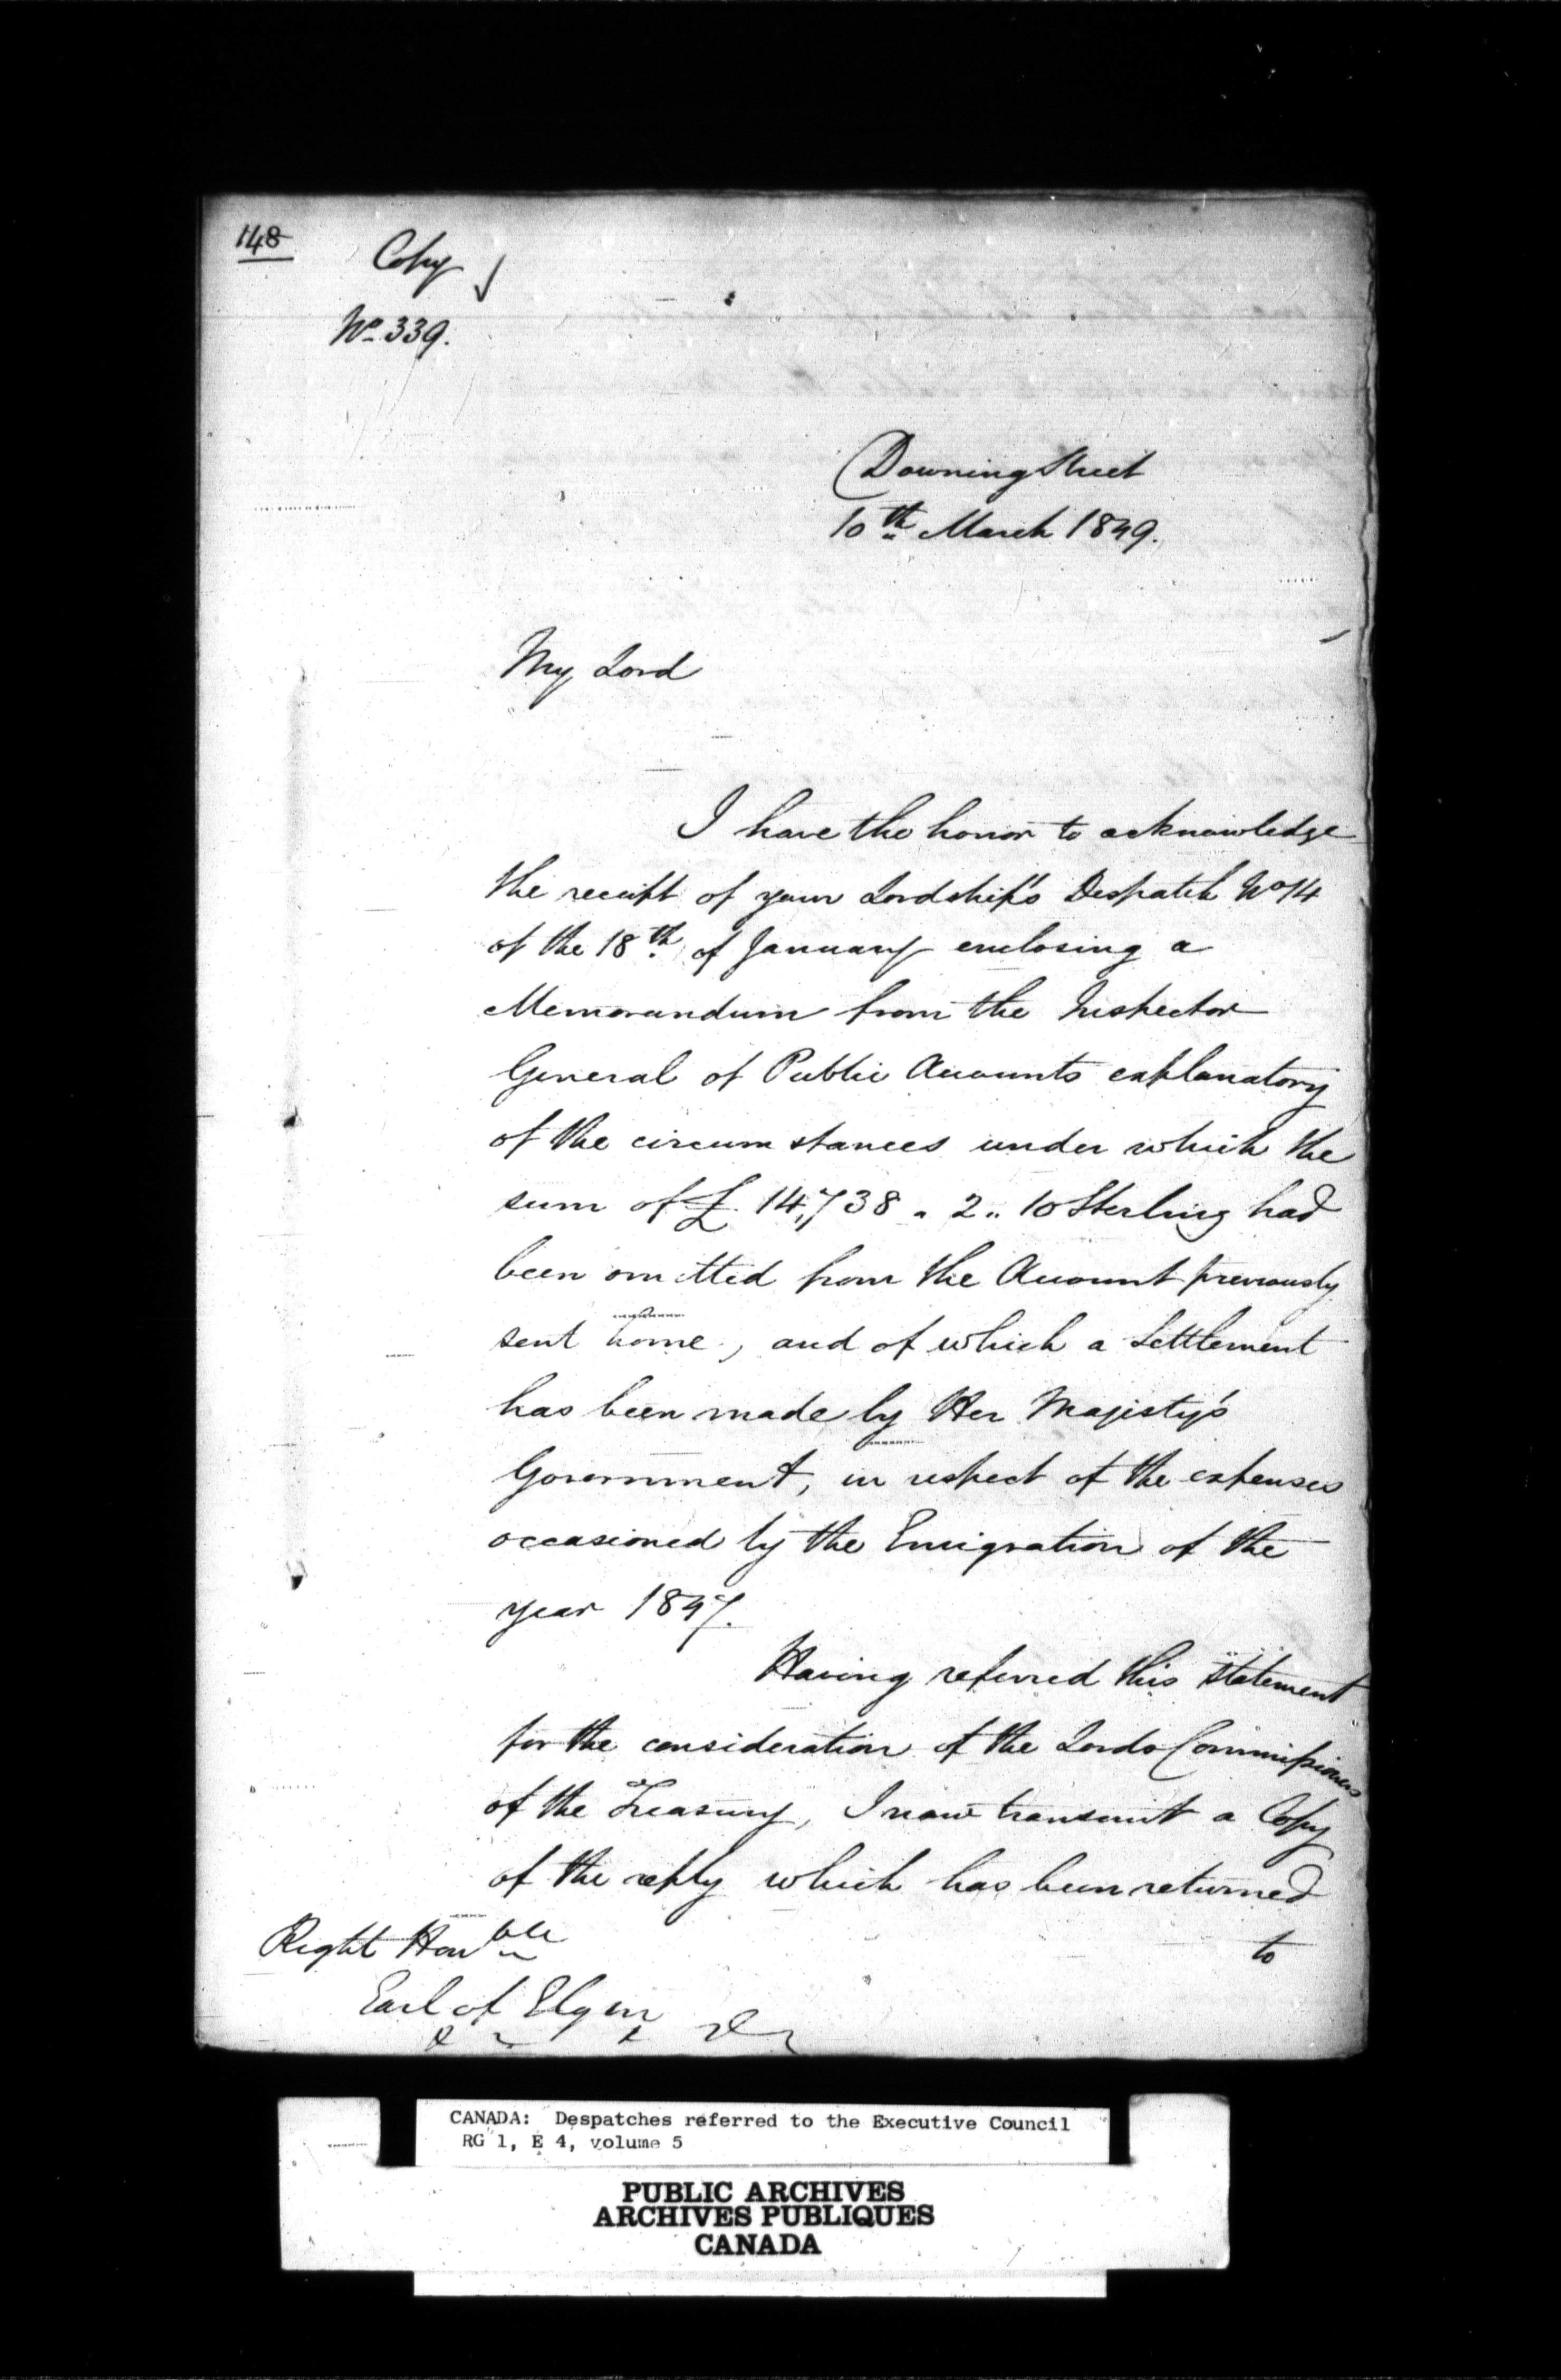 148
Copy
No. 339.
Downing Street
10th March 1849.
My Lord
I have the honor to acknowledge
the receipt of your Lordship's Despatch No 14
of the 18th of January enclosing a
Memorandum from the Inspector
General of Public Accounts explanatory
of the circumstances under which the
sum of £ 14,738 " 2 " 10 Sterling had
been omitted from the Account previously
sent home, and of which a Settlement
has been made by Her Majesty's
Government, in respect of the expenses
occasioned by the Emigration of the
year 1847.
Having referred this Statement
for the consideration of the Lords Commissioners
of the Treasury, I now transmit a Copy
of the reply which has been returned
to
Right Honble
Earl of Elgin
CANADA: Despatches referred to the Executive Council
RG 1, E 4, volume 5
PUBLIC ARCHIVES
ARCHIVES PUBLIQUES
CANADA